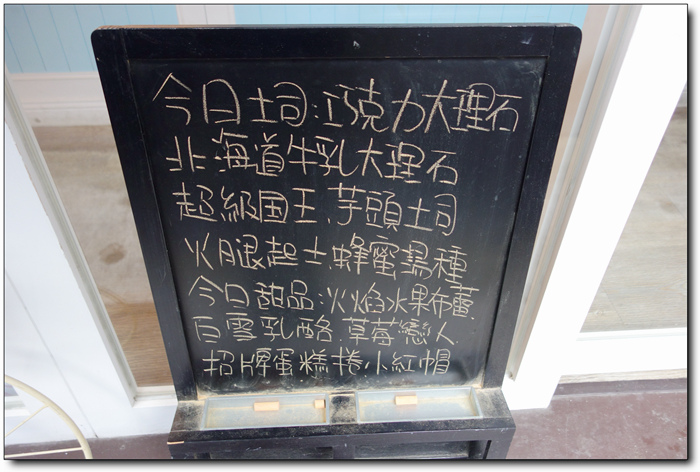 今日土司:巧克力大理石
北海道牛乳大理石
超級国王.芋頭土司
火腿起士.蜂蜜湯種
今日甜品:火焰水果布蕾.
白雪乳酪.草莓戀人
招牌蛋糕捲.小紅帽